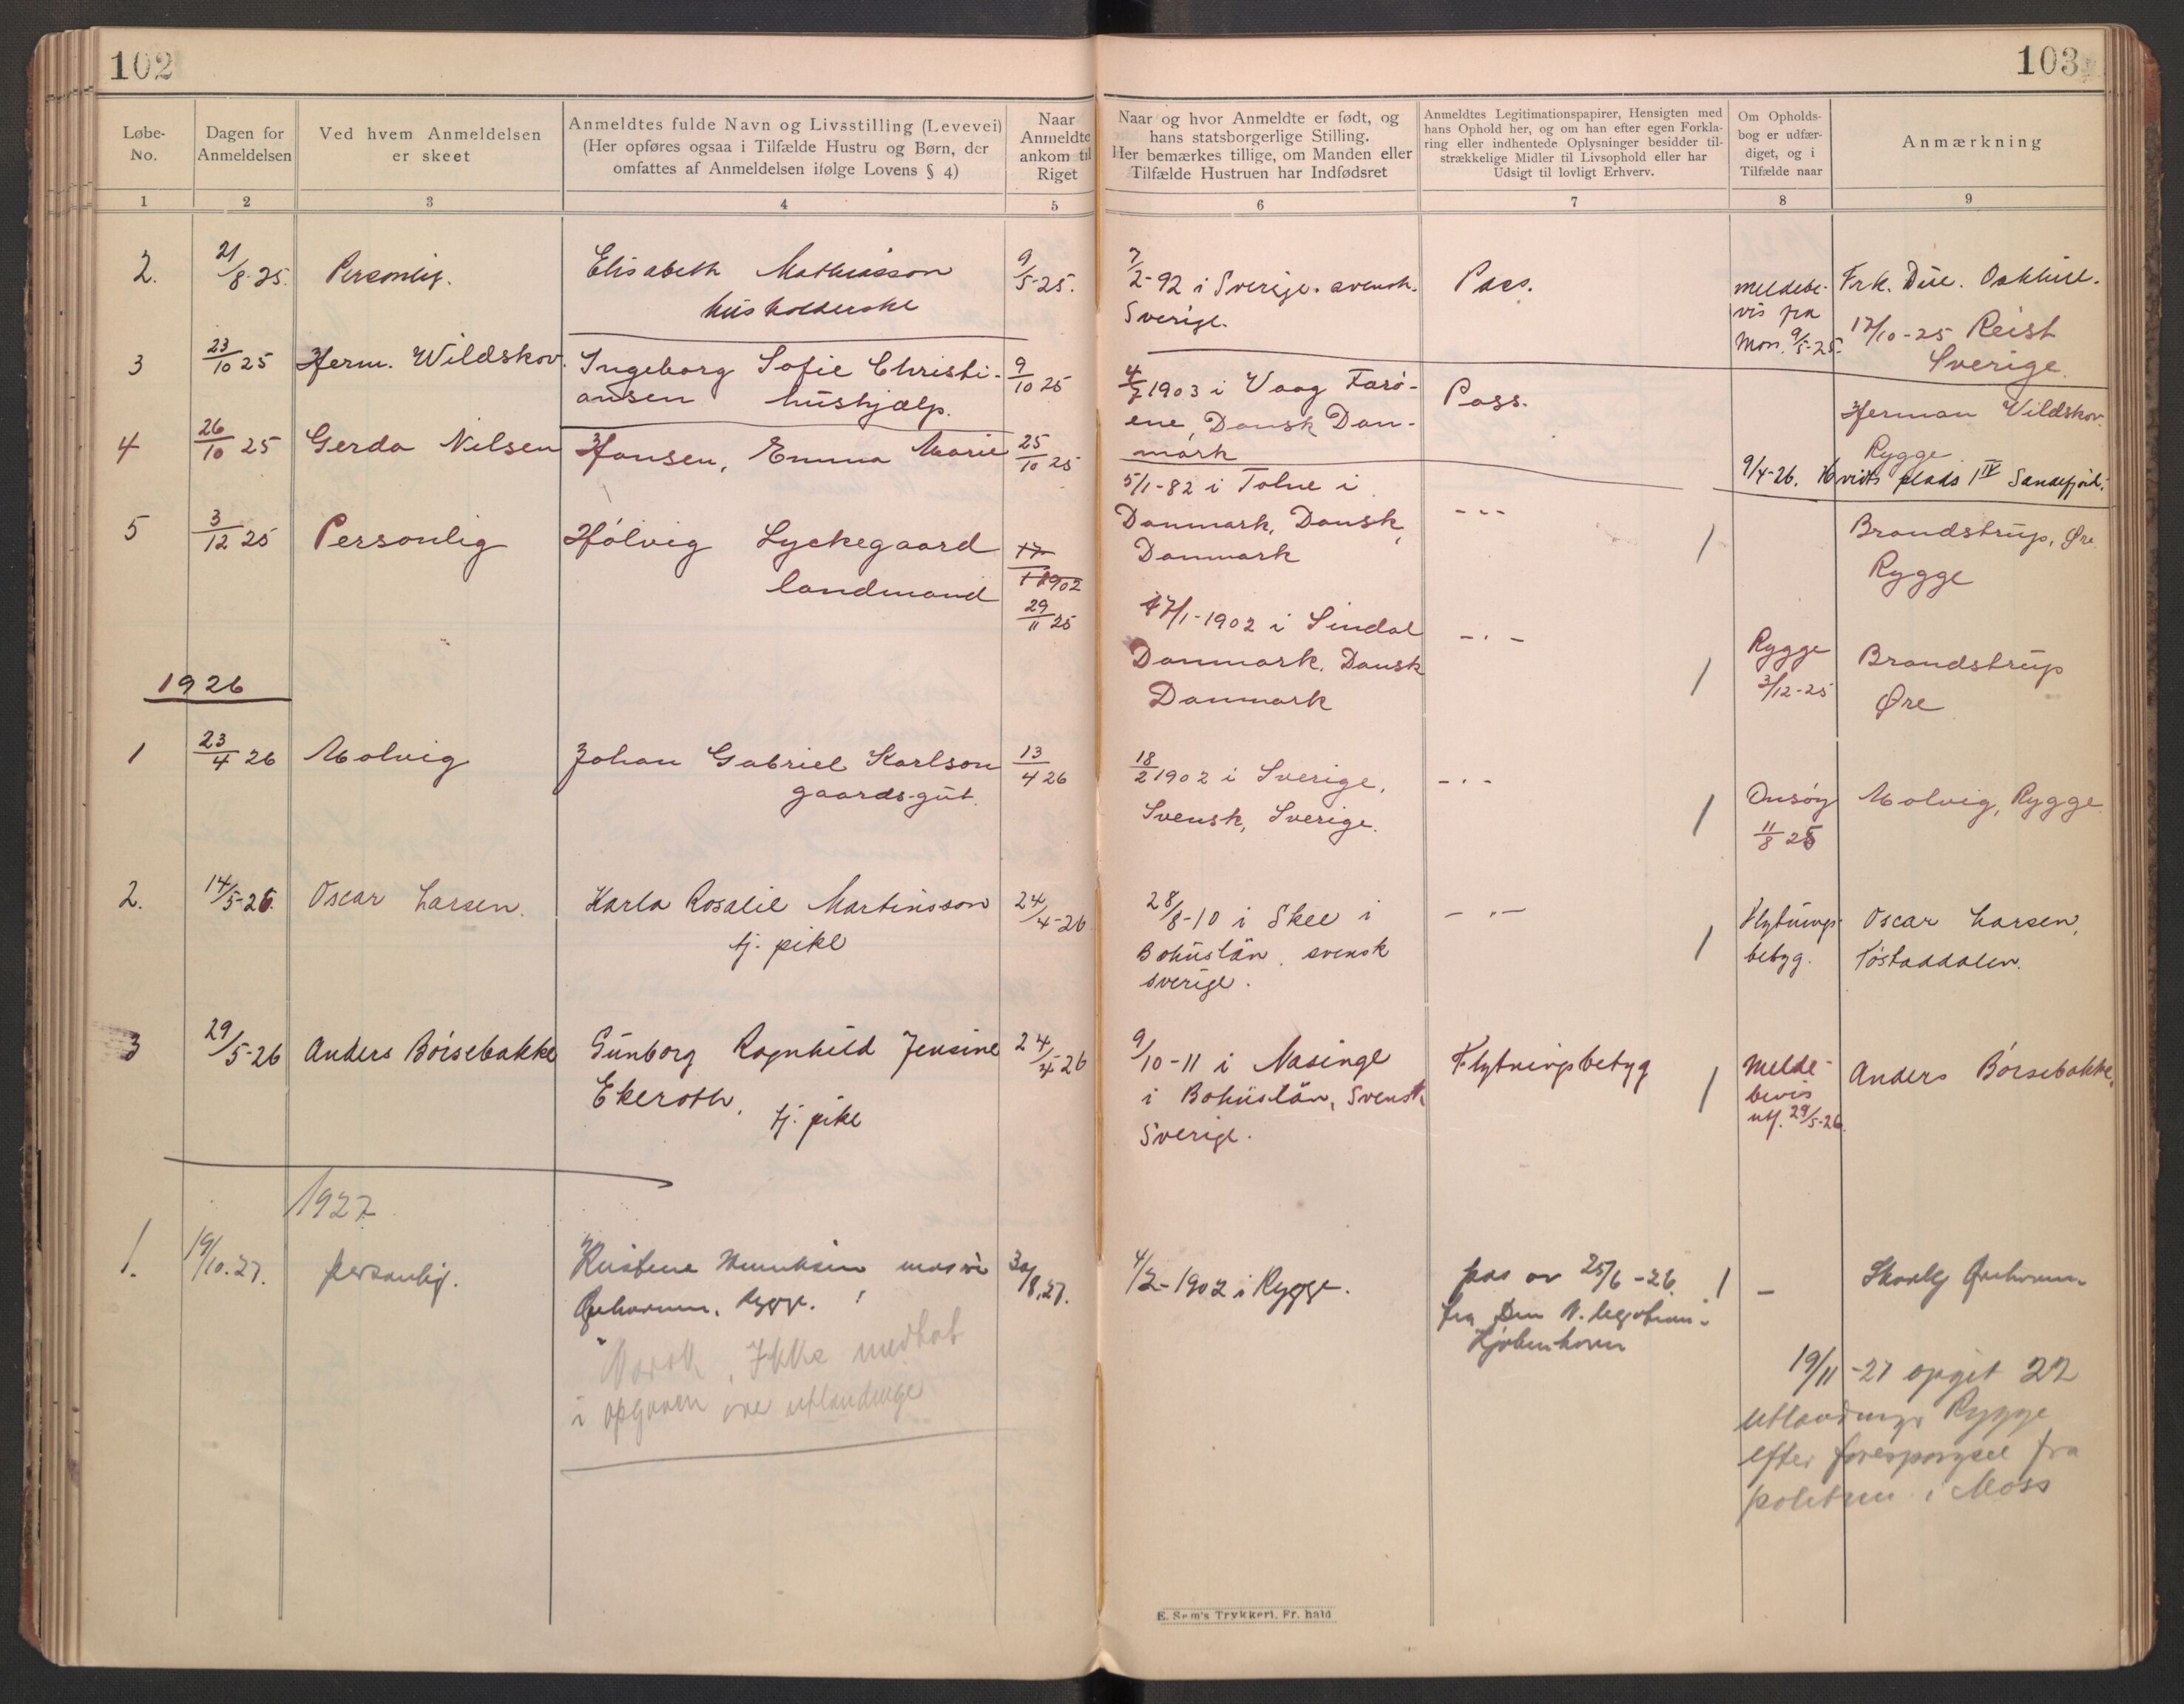 102
103
Løbe-
No.
Dagen for
Anmeldelsen
Ved hvem Anmeldelsen
er skeet
Anmeldtes fulde Navn og Livsstilling (Levevei)
(Her opføres ogsaa i Tilfælde Hustru og Børn, der
omfattes af Anmeldelsen ifølge Lovens § 4)
Naar
Anmeldte
ankom til
Riget
Naar og hvor Anmeldte er født, og
hans statsborgerlige Stilling.
Her bemærkes tillige, om Manden eller
Tilfælde Hustruen har Indfødsret
Anmeldtes Legitimationspapirer, Hensigten med
hans Ophold her, og om han efter egen Forkla-
ring eller indhentede Oplysninger besidder til-
strækkelige Midler til Livsophold eller har
Udsigt til lovligt Erhverv.
Om Opholds-
bog er udfær-
diget, og i
Tilfælde naar
Anmærkning
1 2 3 4 5 6 7 8 9
2. 21/8-25. Personlig. Elisabeth Mathiasson 9/5-25.
husholderske
7/2-92 i Sverige. svensk.
Sverige.
Pass.
meldebe-
vis fra
Mon. 9/5-25.
Frk. Due. Oakhill.
17/10-25 Reist
Sverige.
3 23/10 25 Herm. Wildskov. Ingeborg Sofie Christi- 9/10 25
ansen hushjælp.
4/7 1903 i Vaag Farö-
ene, Dansk Dan-
mark
Pass.
Herman Wildskov.
Rygge
9/4-26. Hvidts plads 1 IV Sandefjord.
4 26/10 25 Gerda Nilsen Hansen, Emma Marie 25/10 25
5/1-82 i Tolne i
Danmark, Dansk,
Danmark
- " -
/
Brandstrup, Øre
Rygge
5 3/12 25 Personlig Hölvig Lyckegaard 17/1 1902
landmand 29/11 25
17/1-1902 i Sindal
Danmark. Dansk
Danmark
- " -
/
Rygge
3/12-25
Brandstrup
Øre
1926
1 23/4 26 Molvig Johan Gabriel Karlson 13/4 26
gaards-gut.
18/2 1902 i Sverige,
Svensk, Sverige.
- " -
/
Onsöy
11/8 25
Molvig, Rygge
2. 14/5-26. Oscar Larsen. Karla Rosalie Martinsson 24/4-26
tj. pike
28/8-10 i Skee i
Bohuslän. svensk
sverige.
- " -
/
Flytnings-
betyg.
Oscar Larsen,
Töstaddalen.
3 29/5-26 Anders Börsebakke Gunborg Ragnhild Jensine 24/4-26
Ekeroth, tj. pike
9/10-11 i Nasinge
i Bohuslän, Svensk
Sverige.
Flytningsbetyg
/
Melde-
bevis
utf. 29/5-26.
Anders Börsebakke.
1927
1. 19/10.27. personlig. Kristene 30/8.27.
Rygge.
4/2-1902 i Rygge.
pas av 25/6-26. / -
fra Den N. legation i
Kjöbenhavn
Norsk. Ikke medtat
i opgaven over utlendinge
19/11-27 opgit 22
utlendinge Rygge
efter forespørgsel fra
politiet i Moss
E. Sem's Trykkeri, Fr. hald